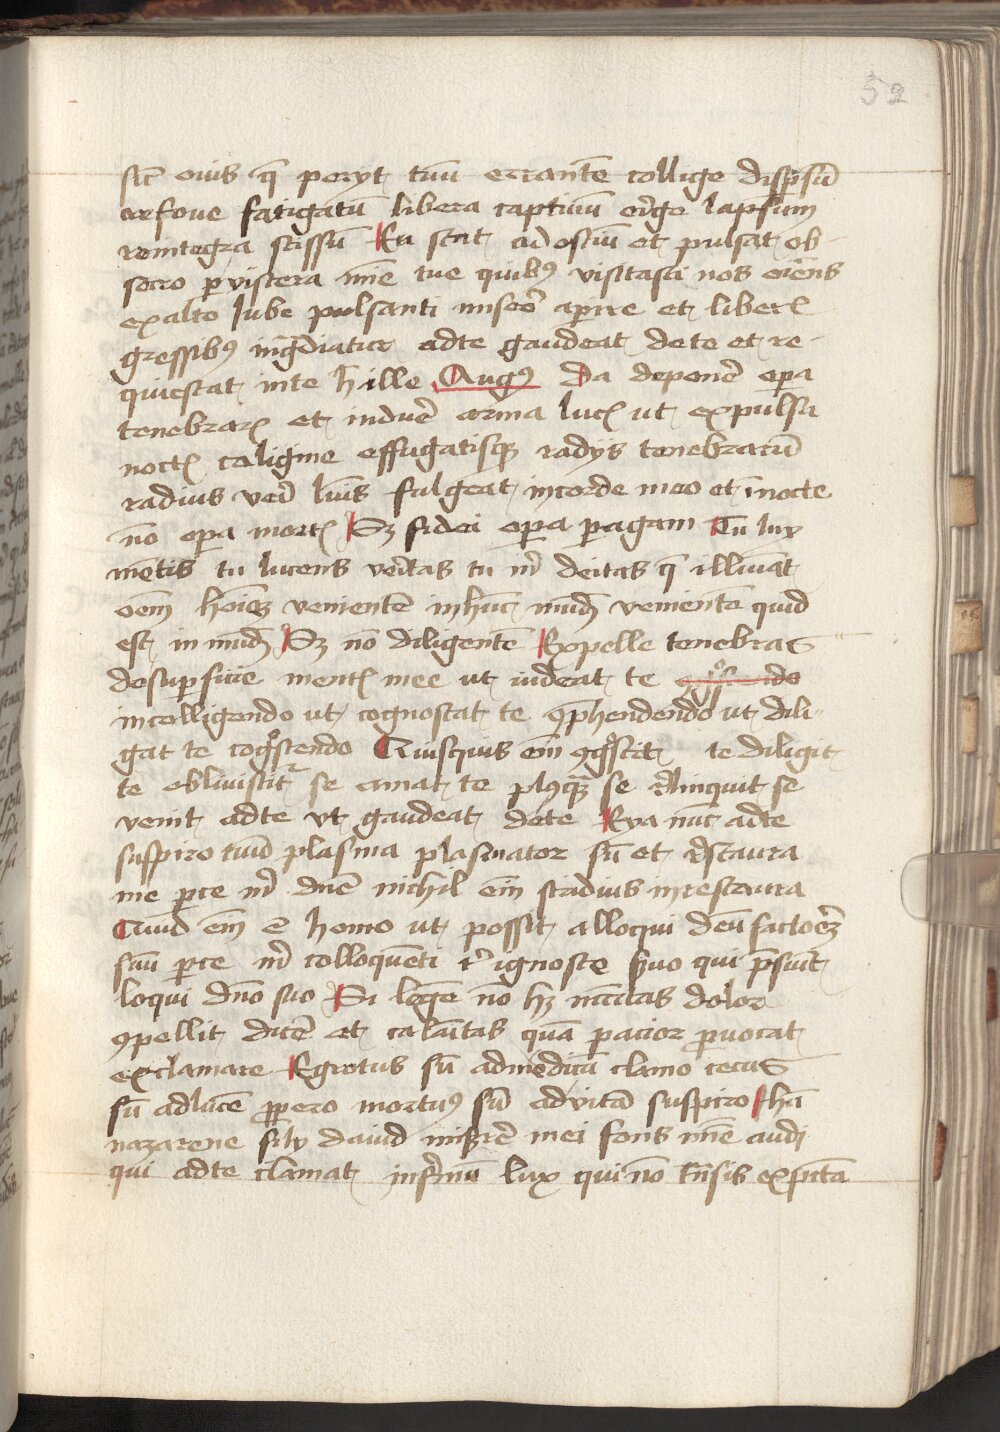 52
sic̄ ouis q̄ peryt tuū errantē collige disp̄sū
refoue fatigatū libera captiuū erige lapsum
reintegra scissū En stat ad ostiū et pulsat ob-
secro p viscera mīe tue quibꝰ visitasti nos oriēs
ex alto Iube pulsanti miseō aperire et liberꝭ
gressibꝰ ingrediatur ad te gaudeat de te et re-
quiescat in te h̄ ille Augꝰ Da deponē opa
tenebrarꝭ et induē arma lucꝭ ut expulsa
noctꝭ caligine effugatisqꝫ radys tenebrarū
radius veri lūis fulgeat in corde meo et in nocte
nō opa mortꝭ Sꝫ fidei opa pagam Tu lux
mētis tu lucens veritas tu m̄ deitas q̄ illuīat
oēm hoīeꝫ venientē in hūc mūdꝫ venientē quid
est in mūdꝫ Sꝫ nō diligentē Expelle tenebras
de supficie mentꝭ mee ut uideat te
intelligendo ut cognoscat te ꝯphendendo ut dili-
gat te cogͦscendo Quisquis em̄ ꝯgͦscit te diligit
te obliuiscitᷣ se amat te plꝰqꝫ se relinquit se
venit ad te vt gaudeat de te Eya nūc ad te
suspiro tuū plasma plasmator sū et restaura
me pce m̄ dn̄e nichil em̄ stadius in restaura
Quid em̄ ē homo ut possit alloqui deū factorꝫ
suū pce m̄ colloquēti tͥ ignosce suo qui p̄sūit
loqui dn̄o suo Si legē nō hꝫ nccītas dolor
ꝯpellit dicē et calāitas quā pacior puocat
exclamare Egrotus sū ad medicū clamo cecus
sū ad lucē ppero mortuꝰ sū ad vitā suspiro Ihū
nazarene fily dauid misērē mei fons mīe audi
qui ad te clamat infirmū lux qui nō trāsis expecta